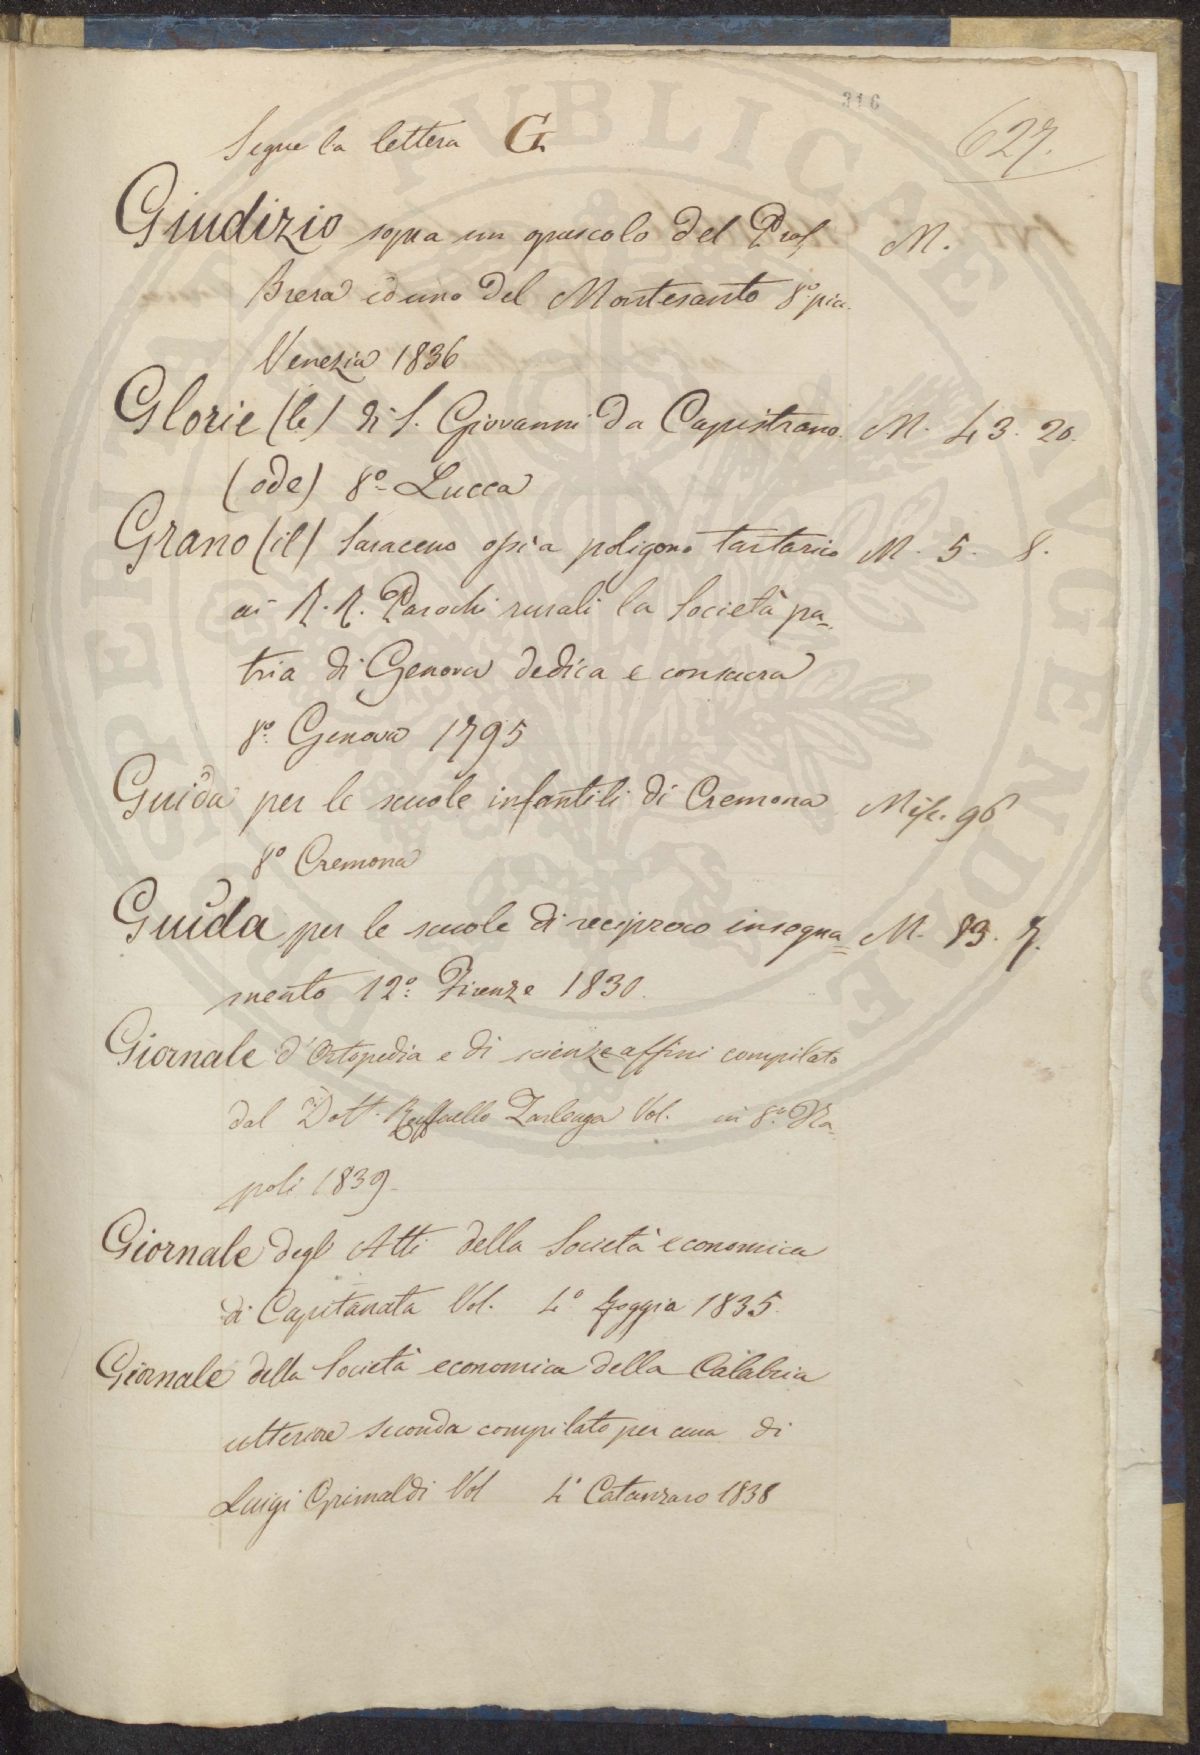 316
627.
Segue la lettera G.
Giudizio sopra un opuscolo del Prof. M.
Brera ed uno del Montesanto 8º. pic.
Venezia 1836
Glorie (le) di S. Giovanni da Capistrano. M. 43. 20.
(ode) 8º Lucca
Grano (il) Saraceno ossia poligono tartarico M. 5. 8.
ai R. R. Parochi rurali la Società pa=
tria di Genova dedica e consacra
8º. Genova 1795
Guida per le scuole infantili di Cremona Misc. 96
8º Cremona
Guida per le scuole di reciproco insegna= M. 83. 7.
mento 12º: Firenze 1830.
Giornale d'Ortopedia e di scienze affini compilato
dal Dott. Raffaello Zarlenga Vol. in 8.º Na=
poli 1839.
Giornale degli Atti della Società economica
di Capitanata Vol. 4º Foggia 1835.
Giornale della Società economica della Calabria
ulteriore seconda compilato per cura di
Luigi Grimaldi Vol 4º Catanzaro 1838